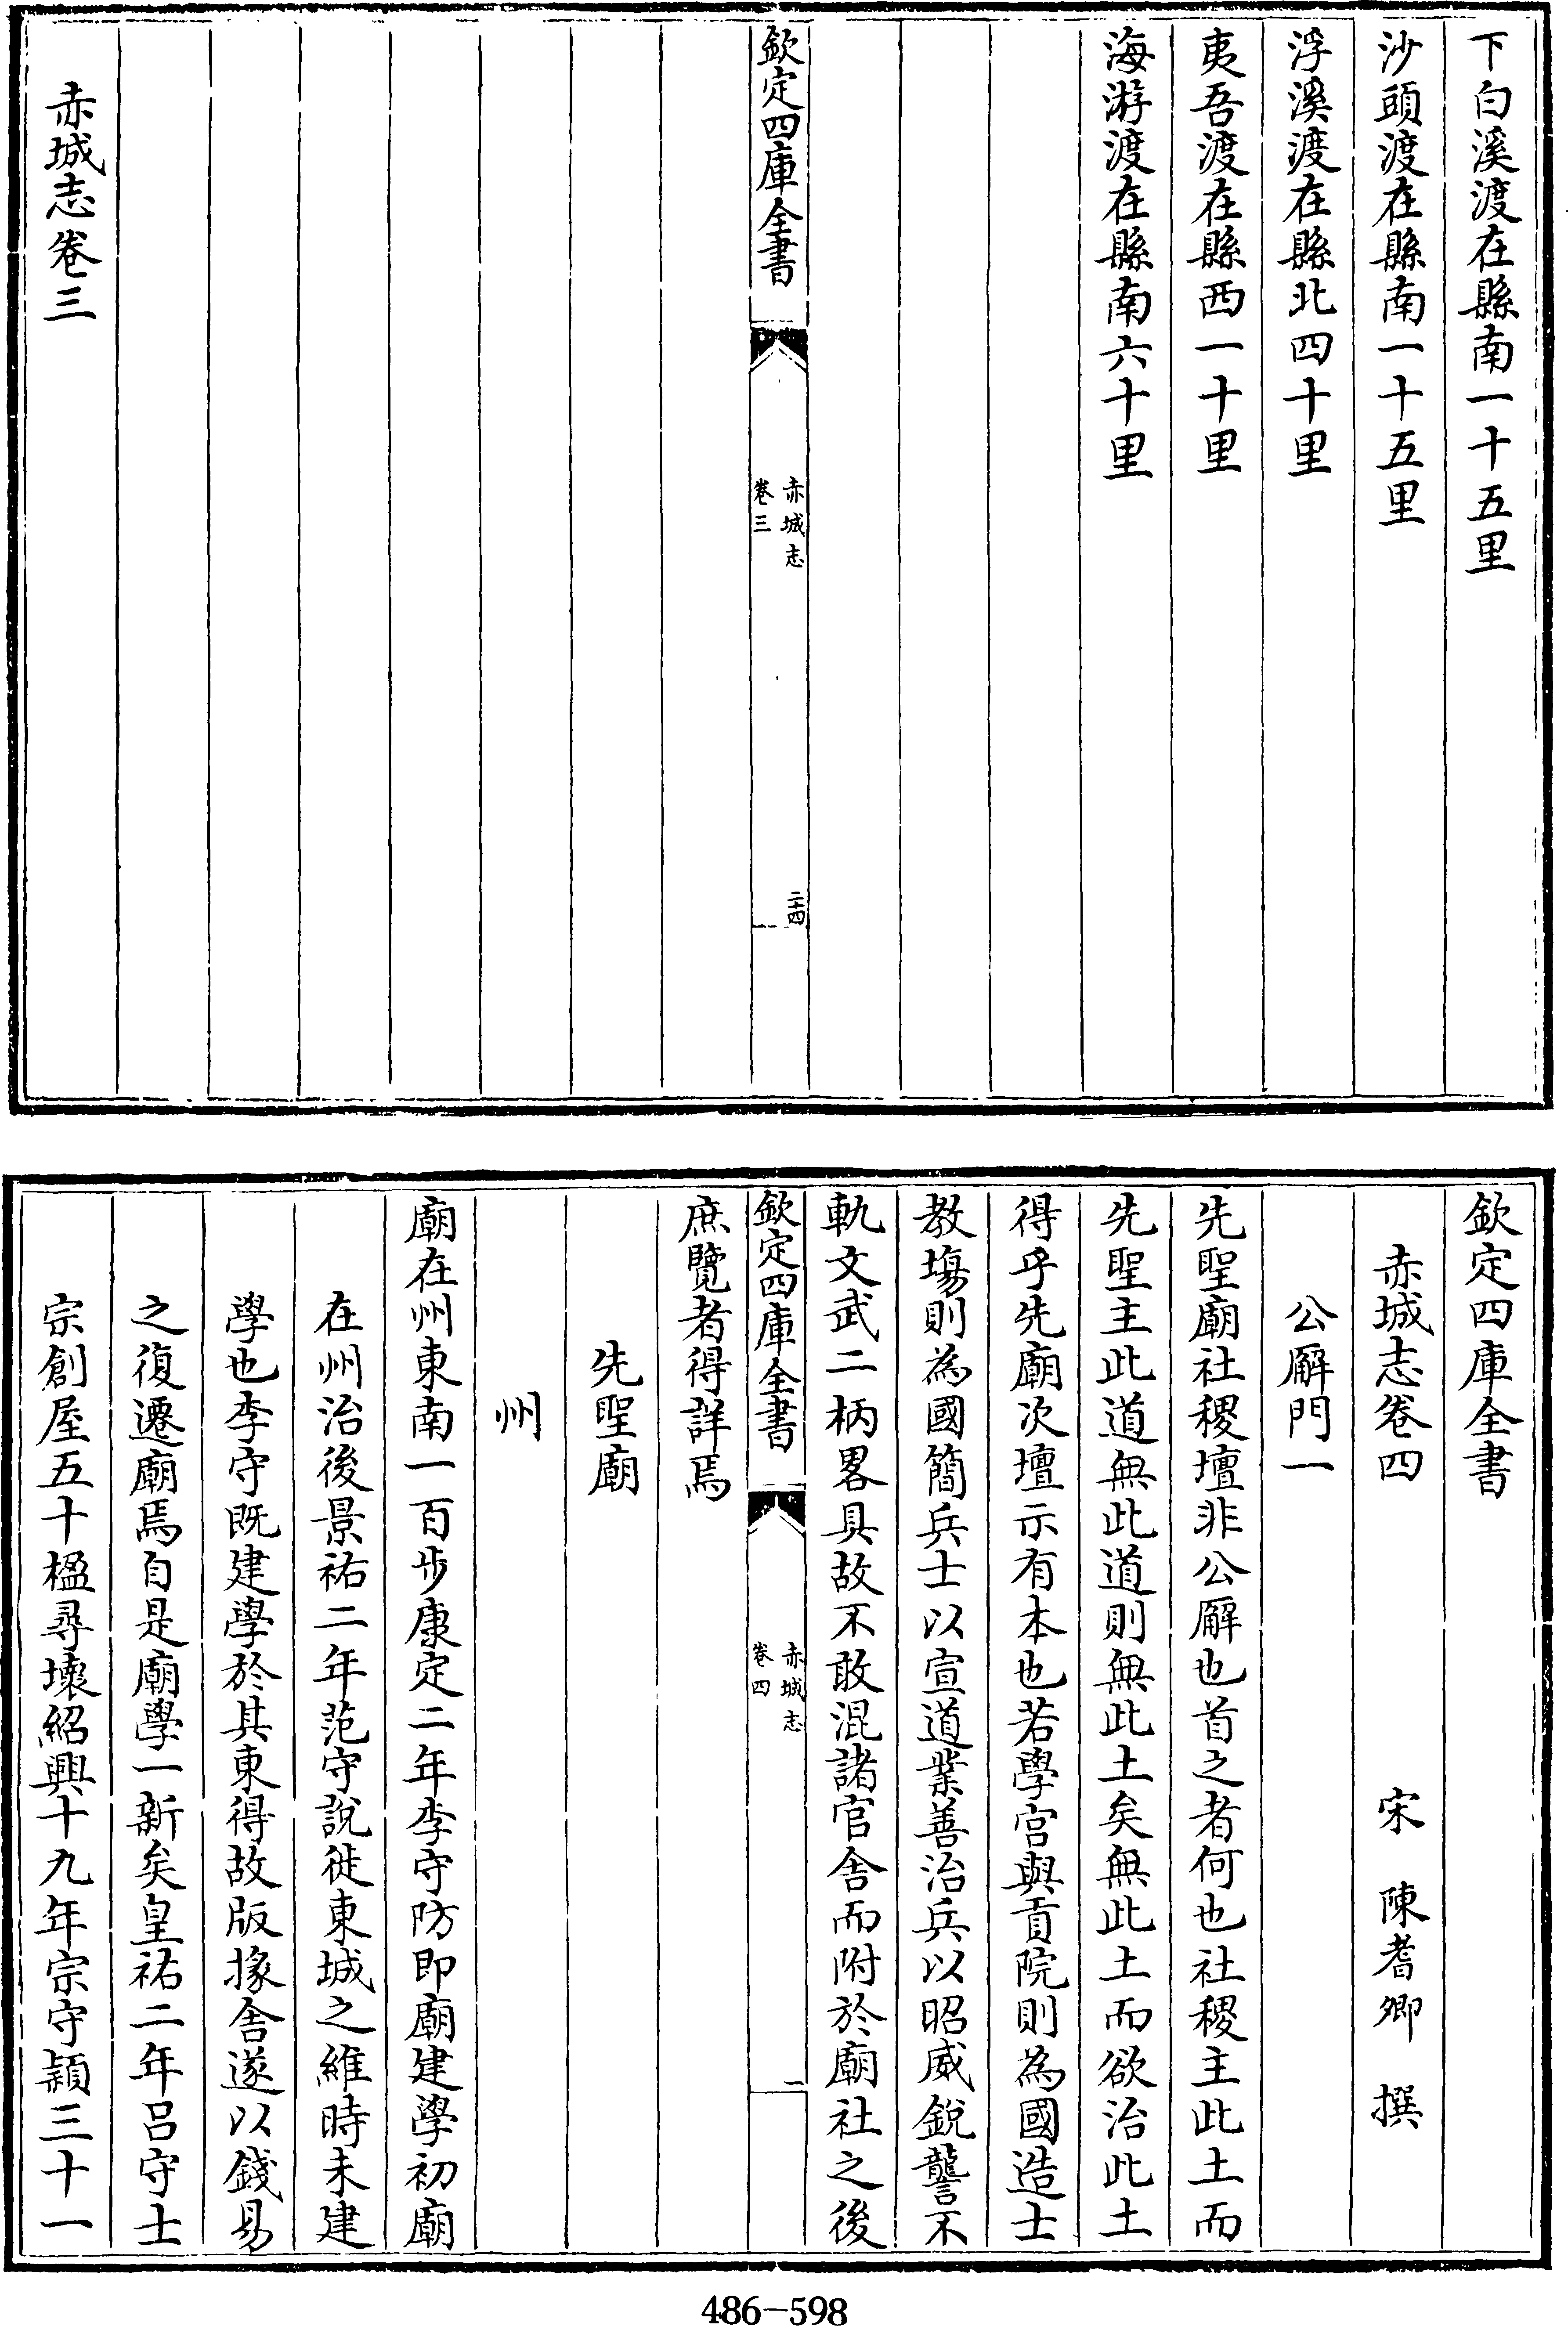 下白溪渡在縣南一十五里
沙頭渡在縣南一十五里
浮溪渡在縣北四十里
夷吾渡在縣西一十里
海游渡在縣南六十里
欽定四庫全書
赤城志
卷三
二十四
赤城志卷三
欽定四庫全書
赤城志卷四
宋 陳耆卿 撰
公廨門一
先聖廟社稷壇非公廨也首之者何也社稷主此土而
先聖主此道無此道則無此土矣無此土而欲治此土
得乎先廟次壇示有本也若學宮與貢院則為國造士
教塲則為國簡兵士以宣道業善治兵以昭威銳讋不
軌文武二柄畧具故不敢混諸官舍而附於廟社之後
欽定四庫全書
赤城志
卷四
一
庶覽者得詳焉
先聖廟
州
廟在州東南一百步康定二年李守防即廟建學初廟
在州治後景祐二年范守說徙東城之維時未建
學也李守既建學於其東得故版掾舍遂以錢易
之復遷廟焉自是廟學一新矣皇祐二年呂守士
宗創屋五十楹尋壞紹興十九年宗守穎三十一
486-598